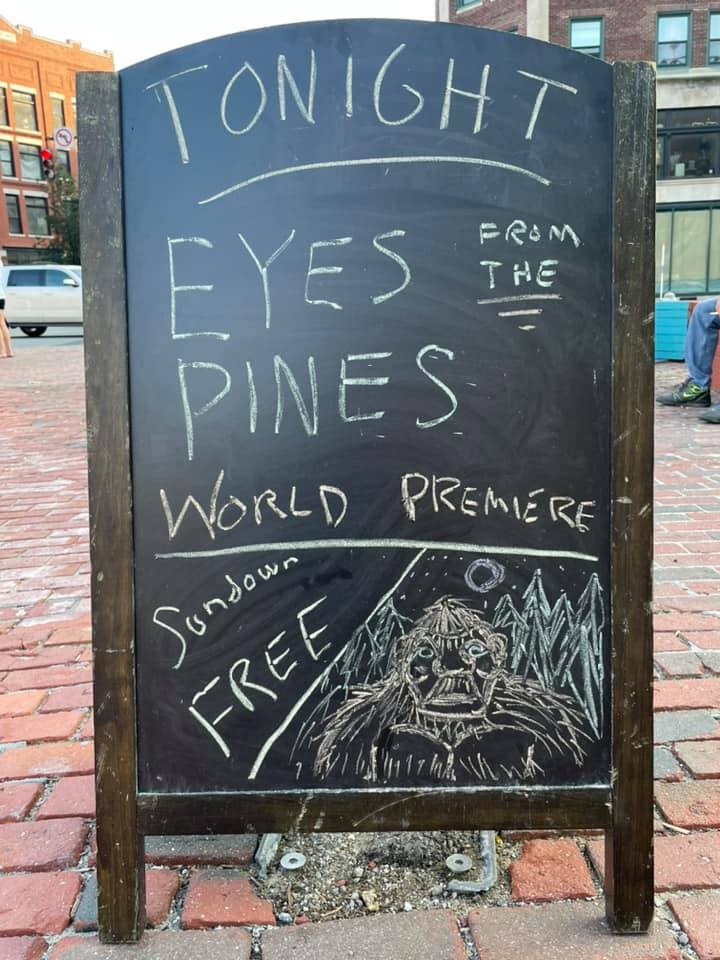 TONIGHT
EYES FROM THE
PINES
WORLD PREMIERE
Sundown
FREE